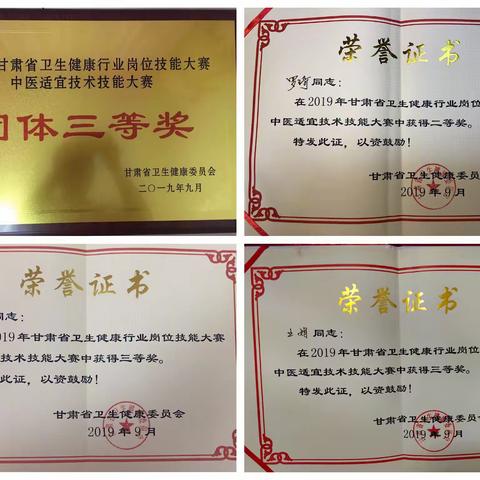 甘肃省卫生健康行业岗位技能大赛
中医适宜技术技能大赛
团体三等奖
甘肃省卫生健康委员会
二〇一九年九月
荣誉证书
同志：
在2019年甘肃省卫生健康行业岗位
中医适宜技术技能大赛中获得二等奖。
特发此证，以资鼓励！
甘肃省卫生健康委员
2019年9月
荣誉证书
同志：
019年甘肃省卫生健康行业岗位技能大赛
技术技能大赛中获得三等奖。
此证，以资鼓励！
甘肃省卫生健康委员会
2019年9月
荣誉证书
王娟 同志：
在2019年甘肃省卫生健康行业岗位
中医适宜技术技能大赛中获得三等奖。
特发此证，以资鼓励！
甘肃省卫生健康委员
2019年9月